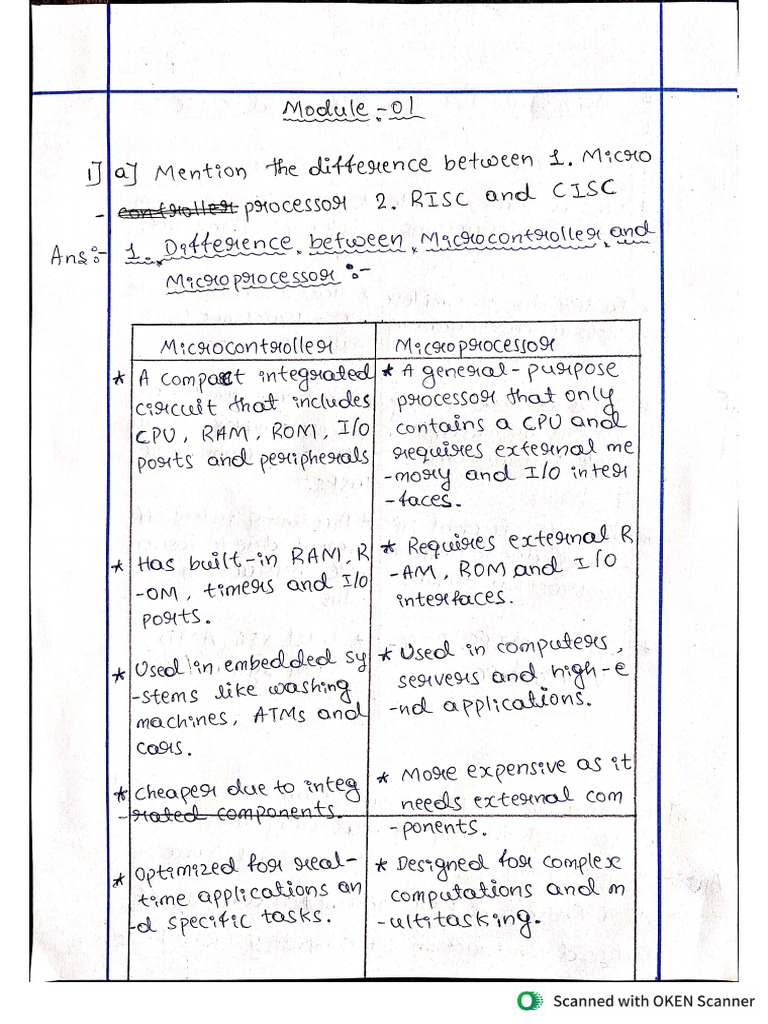 Module :- 01
1] a] Mention the difference between 1. Micro
- controller processor 2. RISC and CISC
Ans :- 1. Difference between Microcontroller and
Microprocessor :-
Microcontroller
* A compact integrated
circuit that includes
CPU, RAM, ROM, I/O
ports and peripherals
* Has built-in RAM, R
-OM, timers and I/O
ports.
* Used in embedded sy
-stems like washing
machines, ATMs and
cars.
* Cheaper due to integ
-rated components.
* Optimized for real-
time applications an
-d specific tasks.
Microprocessor
* A general-purpose
processor that only
contains a CPU and
requires external me
-mory and I/O inter
-faces.
* Requires external R
-AM, ROM and I/O
interfaces.
* Used in computers,
servers and high-e
-nd applications.
* More expensive as it
needs external com
-ponents.
* Designed for complex
computations and m
-ultitasking.
Scanned with OKEN Scanner